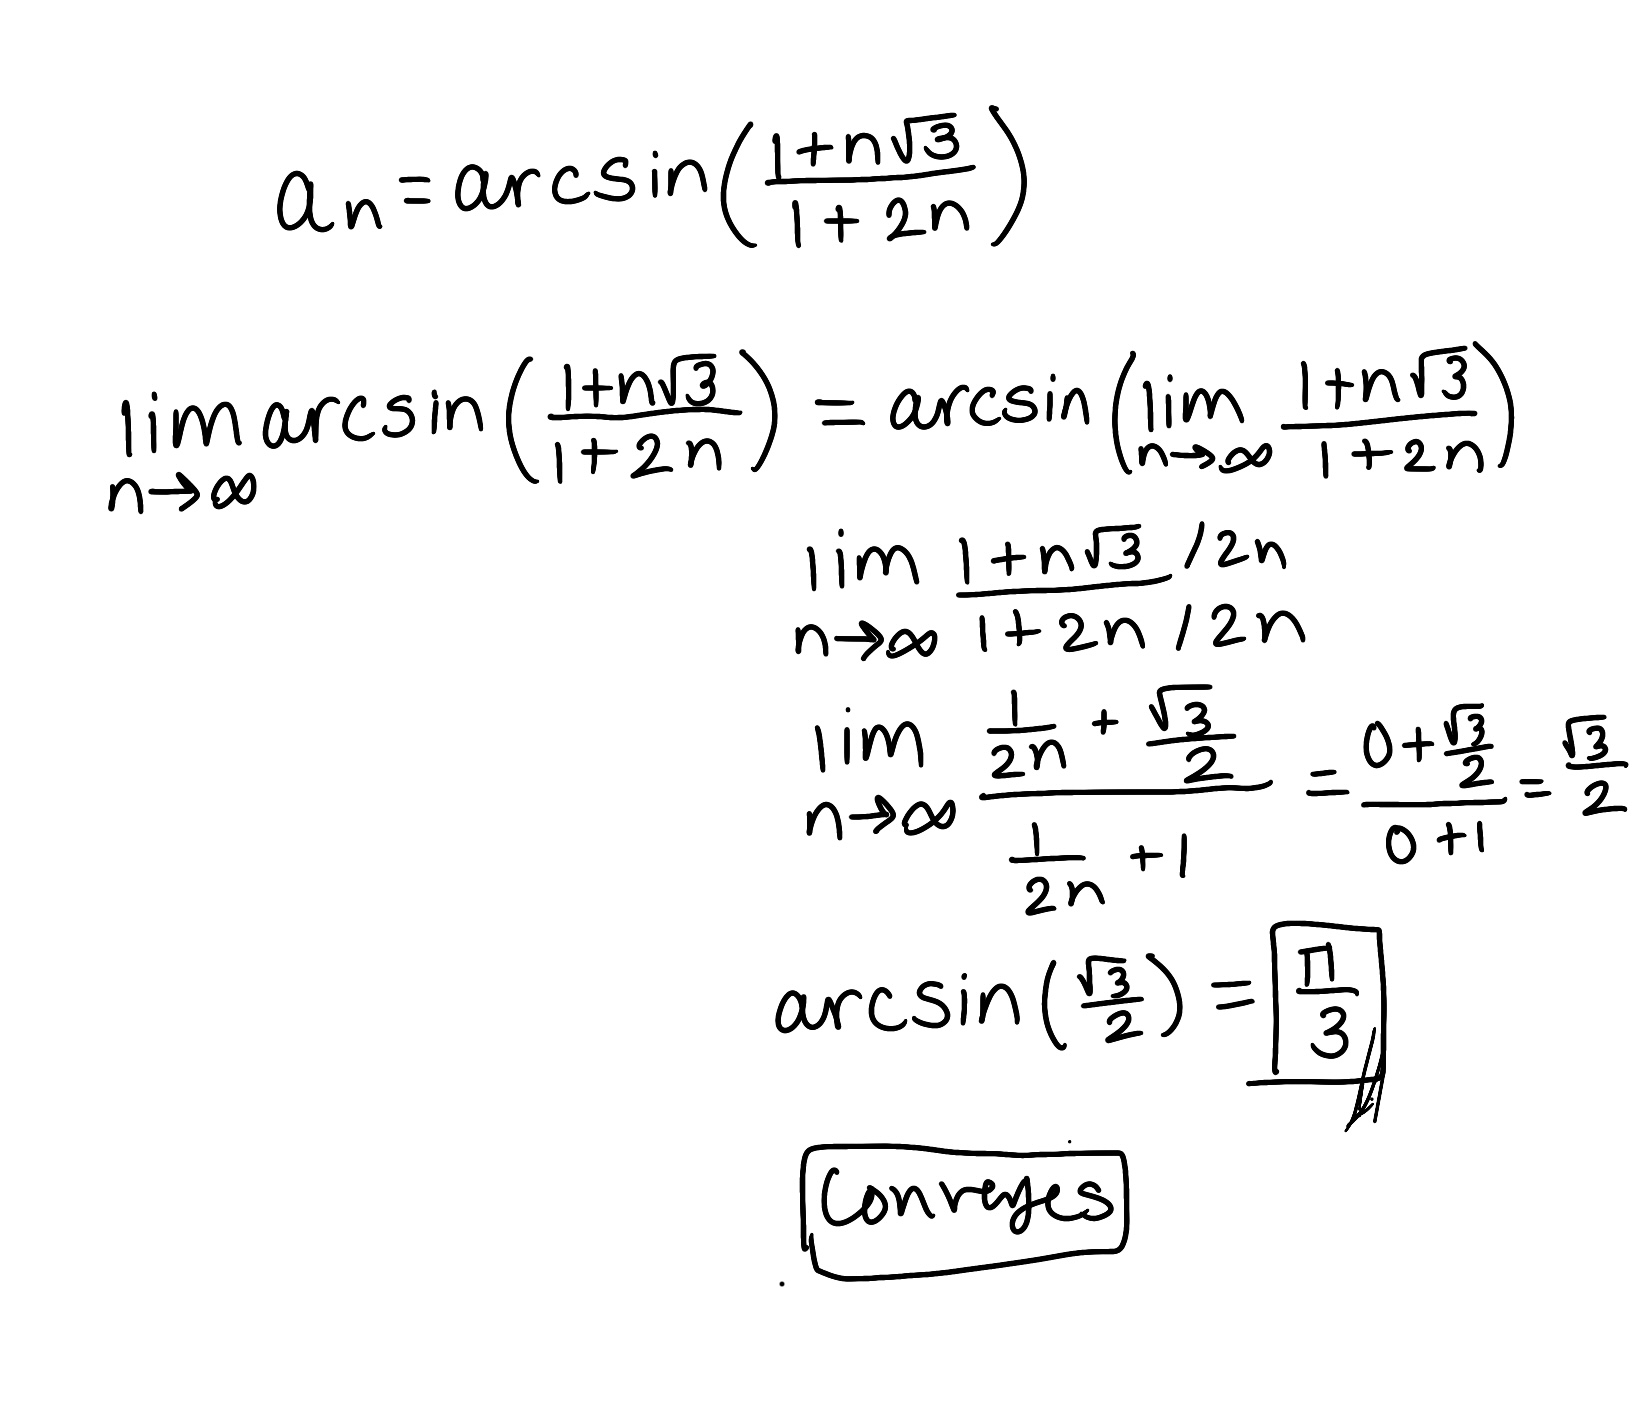 aₙ = arcsin((1+n√3)/(1+2n))
lim n→∞ arcsin((1+n√3)/(1+2n)) = arcsin(lim n→∞ (1+n√3)/(1+2n))
lim n→∞ (1+n√3 /2n)/(1+2n /2n)
lim n→∞ (1/2n + √3/2)/(1/2n + 1) = (0+√3/2)/(0+1) = √3/2
arcsin(√3/2) = π/3
Converges